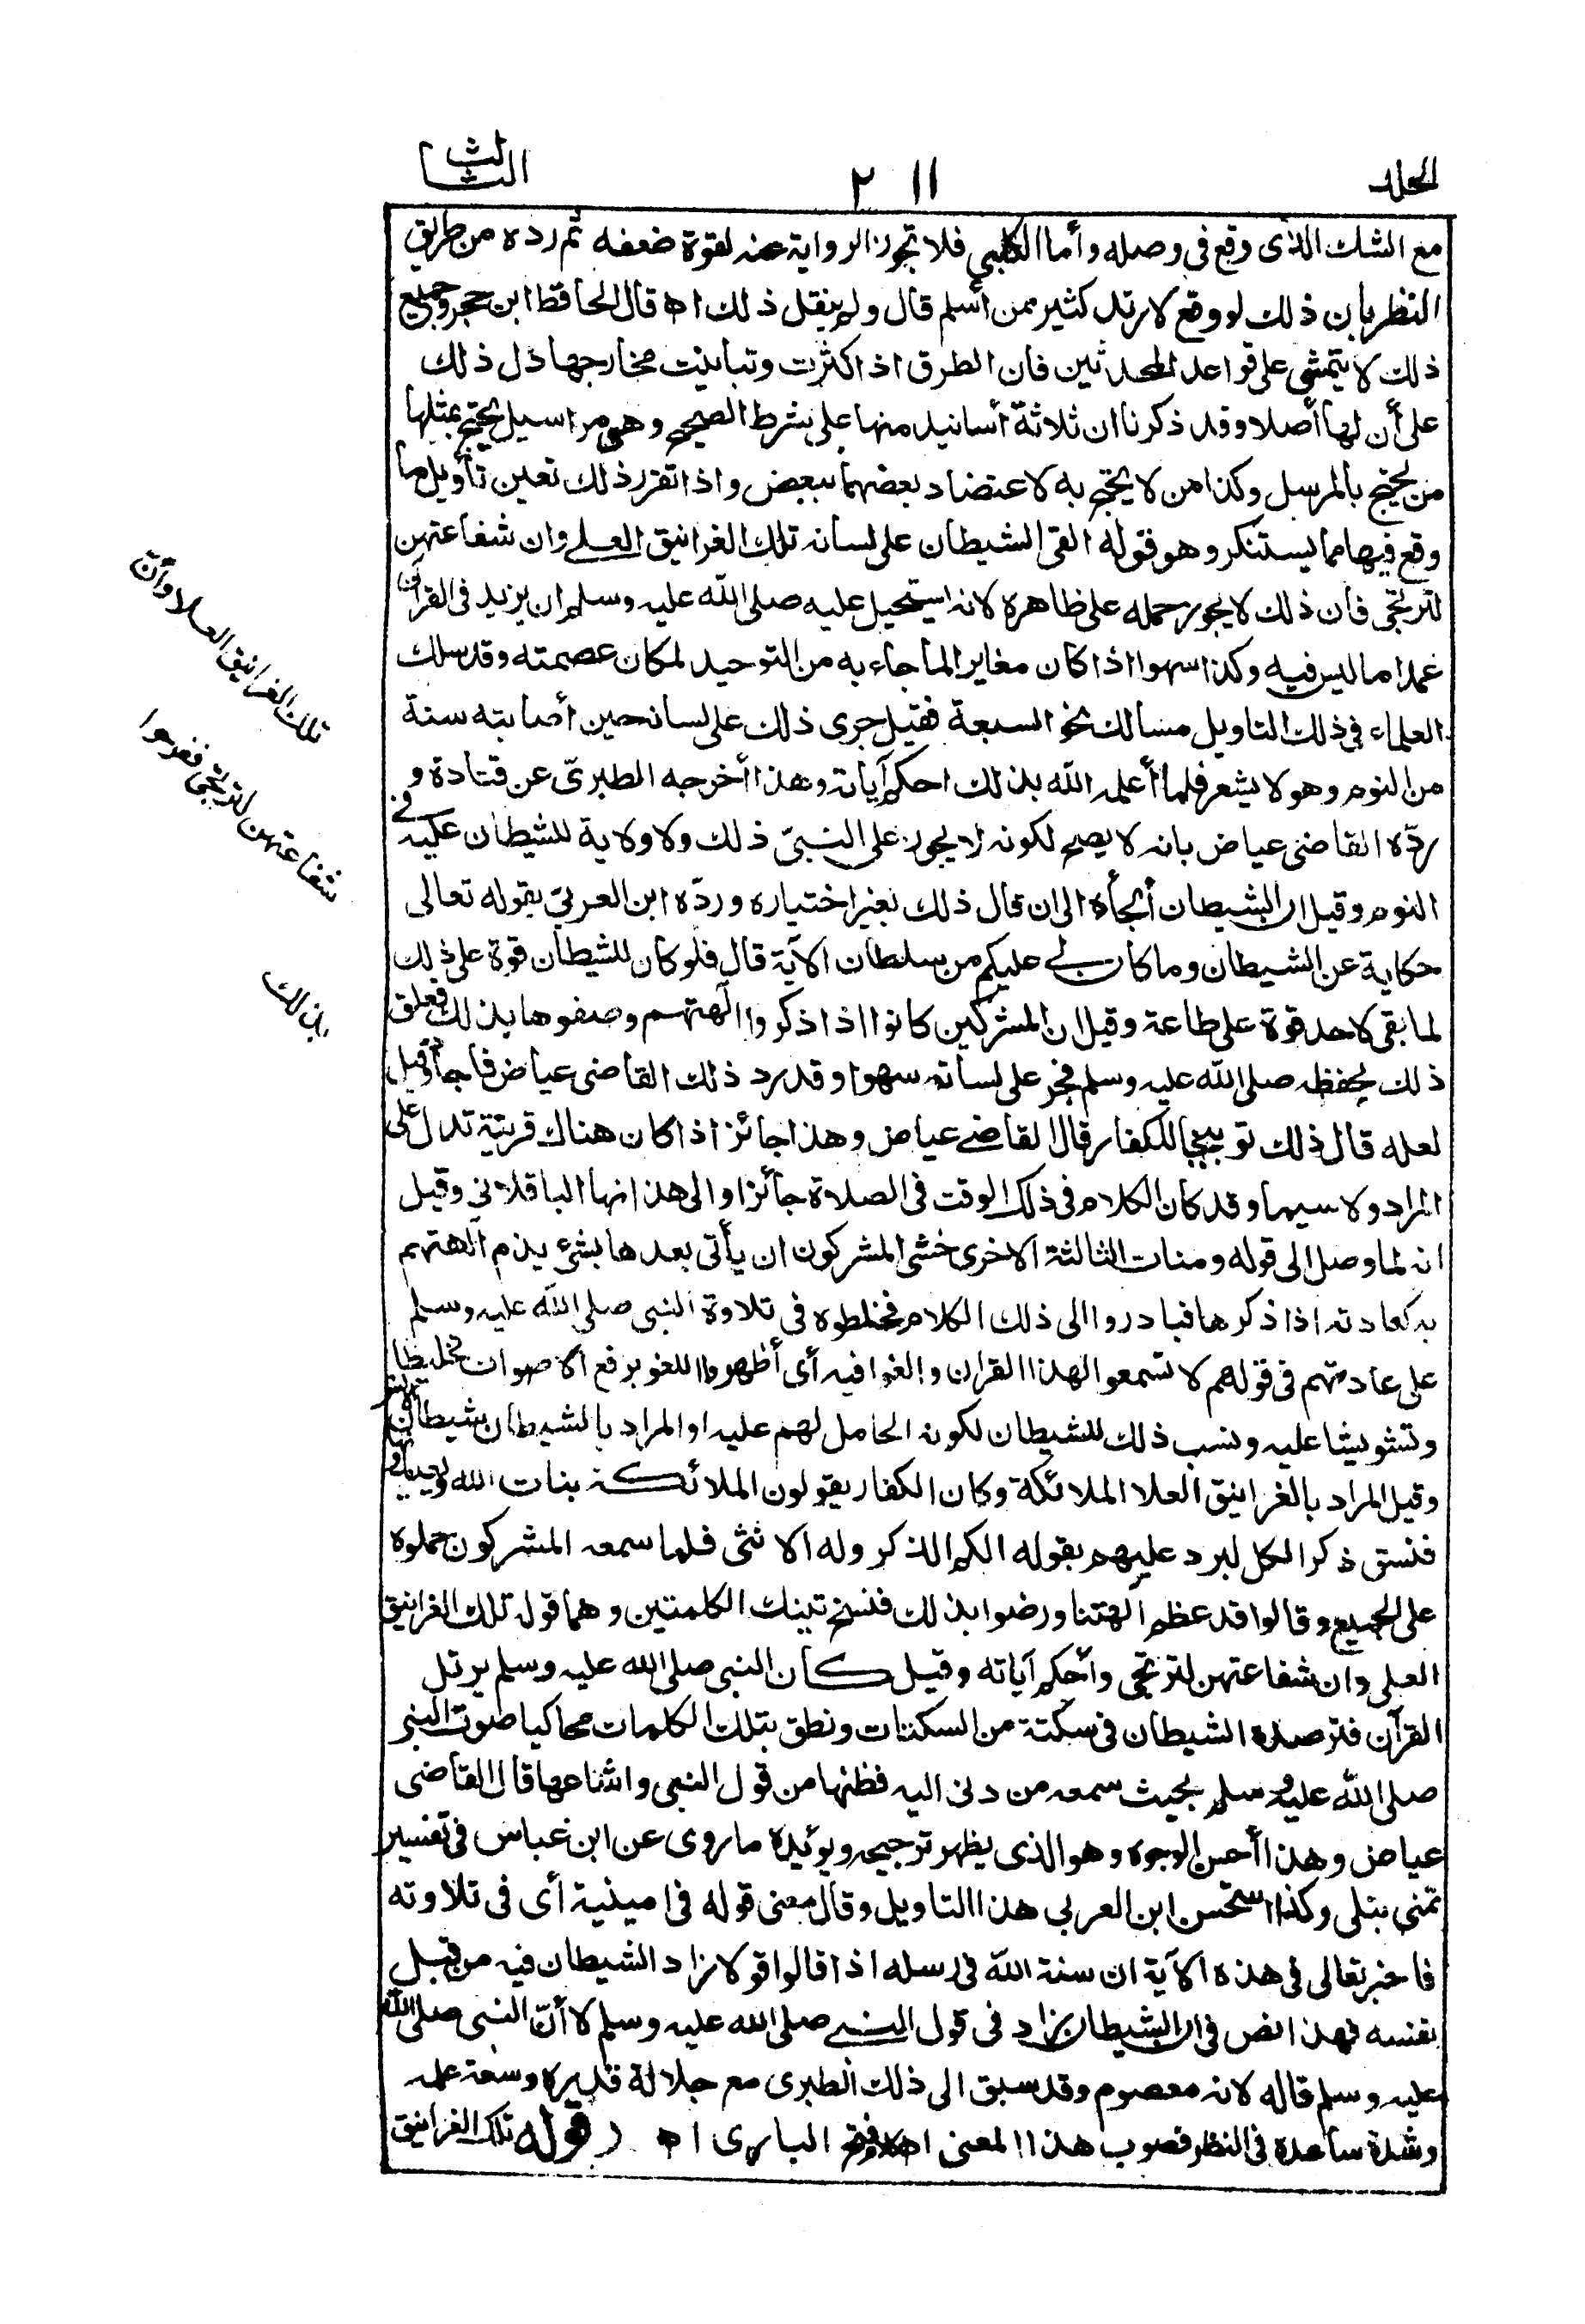 المجلد
٢١١
الثالث
مع الشك الذى وقع فى وصله وأما الكلبي فلا تجوز الرواية عنه لقوة ضعفه ثم رده من طريق
النظر بان ذلك لو وقع لارتد كثير ممن أسلم قال ولم ينقل ذلك اه قال الحافظ ابن حجر وجميع
ذلك لا يتمشى على قواعد المحدثين فان الطرق اذا كثرت وتباينت مخارجها دل ذلك
على أن لها أصلا وقد ذكرنا ان ثلاثة أسانيد منها على شرط الصحيح وهى مراسيل يحتج بمثلها
من يحتج بالمرسل وكذا من لا يحتج به لاعتضاد بعضها ببعض واذا تقرر ذلك تعين تأويل ما
وقع فيها مما يستنكر وهو قوله القى الشيطان على لسانه تلك الغرانيق العلے وان شفاعتهن
لترتجى فان ذلك لا يجوز حمله على ظاهره لانه يستحيل عليه صلى الله عليه وسلم ان يزيد فى القرآن
عمدا ما ليس فيه وكذا سهوا اذا كان مغاير الما جاء به من التوحيد لمكان عصمته وقد سلك
العلماء فى ذلك التاويل مسالك نحو السبعة فقيل جرى ذلك على لسانه حين أصابته سنة
من النوم وهو لا يشعر فلما أعلمه الله بذلك احكم آياته وهذا أخرجه الطبرىّ عن قتادة و
ردّه القاضى عياض بانه لا يصح لكونه لا يجوز على النبىّ ذلك ولا ولاية للشيطان عليه فى
النوم وقيل ان الشيطان ألجأه الى ان قال ذلك بغير اختياره وردّه ابن العربيّ بقوله تعالى
حكاية عن الشيطان وما كان لے عليكم من سلطان الآية قال فلو كان للشيطان قوة على ذلك
لما بقى لاحد قوة على طاعة وقيل ان المشركين كانوا اذا ذكروا آلهتهم وصفوها بذلك فعلق
ذلك بحفظه صلى الله عليه وسلم فجر على لسانه سهوا وقد رد ذلك القاضى عياض فأجاد وقيل
لعله قال ذلك توبيخا للكفار قال القاضے عياض وهذا جائز اذا كان هناك قرينة تدل على
المراد ولا سيما وقد كان الكلام فى ذلك الوقت فى الصلاة جائزا والى هذا نحا الباقلانى وقيل
انه لما وصل الى قوله ومنات الثالثة الاخرى خشى المشركون ان يأتى بعدها بشىء يذم آلهتهم
به كعادته اذا ذكرها فبادروا الى ذلك الكلام فخلطوه فى تلاوة النبى صلى الله عليه وسلم
على عادتهم فى قولهم لا تسمعوا لهذا القران والغوا فيه أى أظهروا اللغو برفع الاصوات تخليطا
وتشويشا عليه ونسب ذلك للشيطان لكونه الحامل لهم عليه او المراد بالشيطان شيطان الانس
وقيل المراد بالغرانيق العلا الملائكة وكان الكفار يقولون الملائكة بنات الله ويعبدونها
فنسق ذكر الكل ليرد عليهم بقوله الكم الذكر وله الانثى فلما سمعه المشركون حملوه
على الجميع وقالوا قد عظم آلهتنا ورضوا بذلك فنسخ تينك الكلمتين وهما قوله تلك الغرانيق
العلى وان شفاعتهن لترتجى وأحكم آياته وقيل كان النبى صلى الله عليه وسلم يرتل
القرآن فترصده الشيطان فى سكتة من السكتات ونطق بتلك الكلمات محاكيا صوت النبى
صلى الله عليه وسلم بحيث سمعه من دنى اليه فظنها من قول النبى واشاعها قال القاضى
عياض وهذا أحسن الوجوه وهو الذى يظهر ترجيحه ويؤيده ما روى عن ابن عباس فى تفسير
تمنى بتلى وكذا استحسن ابن العربى هذا التاويل وقال معنى قوله فى امينية أى فى تلاوته
فاخبر تعالى فى هذه الآية ان سنة الله فى رسله اذا قالوا قولا زاد الشيطان فيه من قبل
نفسه فهذا نص فى ان الشيطان زاد فى قول النبے صلى الله عليه وسلم لا أنّ النبى صلى الله
عليه وسلم قاله لانه معصوم وقد سبق الى ذلك الطبرى مع جلالة قدره وسعة علمه
وشدة ساعده فى النظر فصوب هذا المعنى اه فتح البارى اه ر قوله تلك الغرانيق
تلك الغرانيق العلا وأنّ
شفاعتهن لترتجى ففرحوا
بذلك